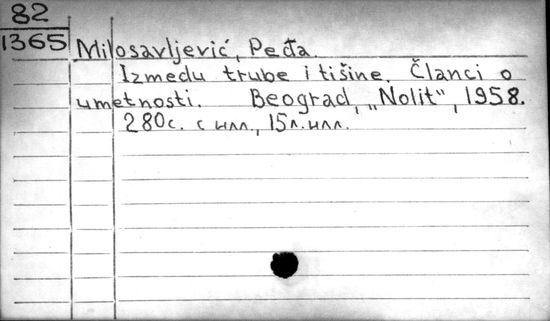 82
1365
Milosavljević, Peđa.
Izmedu trube i tišine. Članci o
umetnosti. Beograd, „Nolit“, 1958.
280с. с илл., 15л. илл.